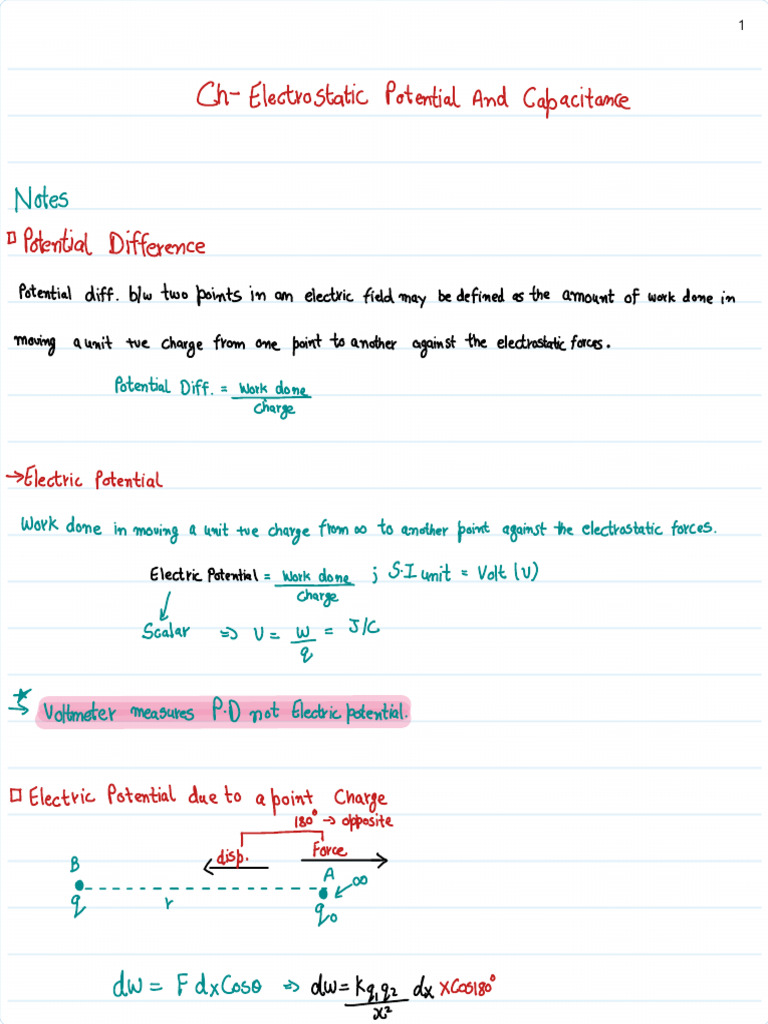 1
Ch- Electrostatic Potential And Capacitance
Notes
Potential Difference
Potential diff. b/w two points in an electric field may be defined as the amount of work done in
moving a unit +ve charge from one point to another against the electrostatic forces.
Potential Diff. = Work done / Charge
→ Electric Potential
Work done in moving a unit +ve charge from ∞ to another point against the electrostatic forces.
Electric Potential = Work done / Charge ; S.I unit = Volt (V)
Scalar ⇒ V = W / q = J/C
→ Voltmeter measures P.D not Electric potential.
Electric Potential due to a point Charge
180° → opposite
disp. Force
B A ∞
q r q₀
dw = F dx Cosθ ⇒ dw = Kq₁q₂ / x² dx x Cos180°